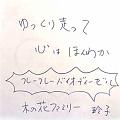 ゆっくり走って
心はほんわか
フレーフレーバイオディーゼル
木の花ファミリー 玲子